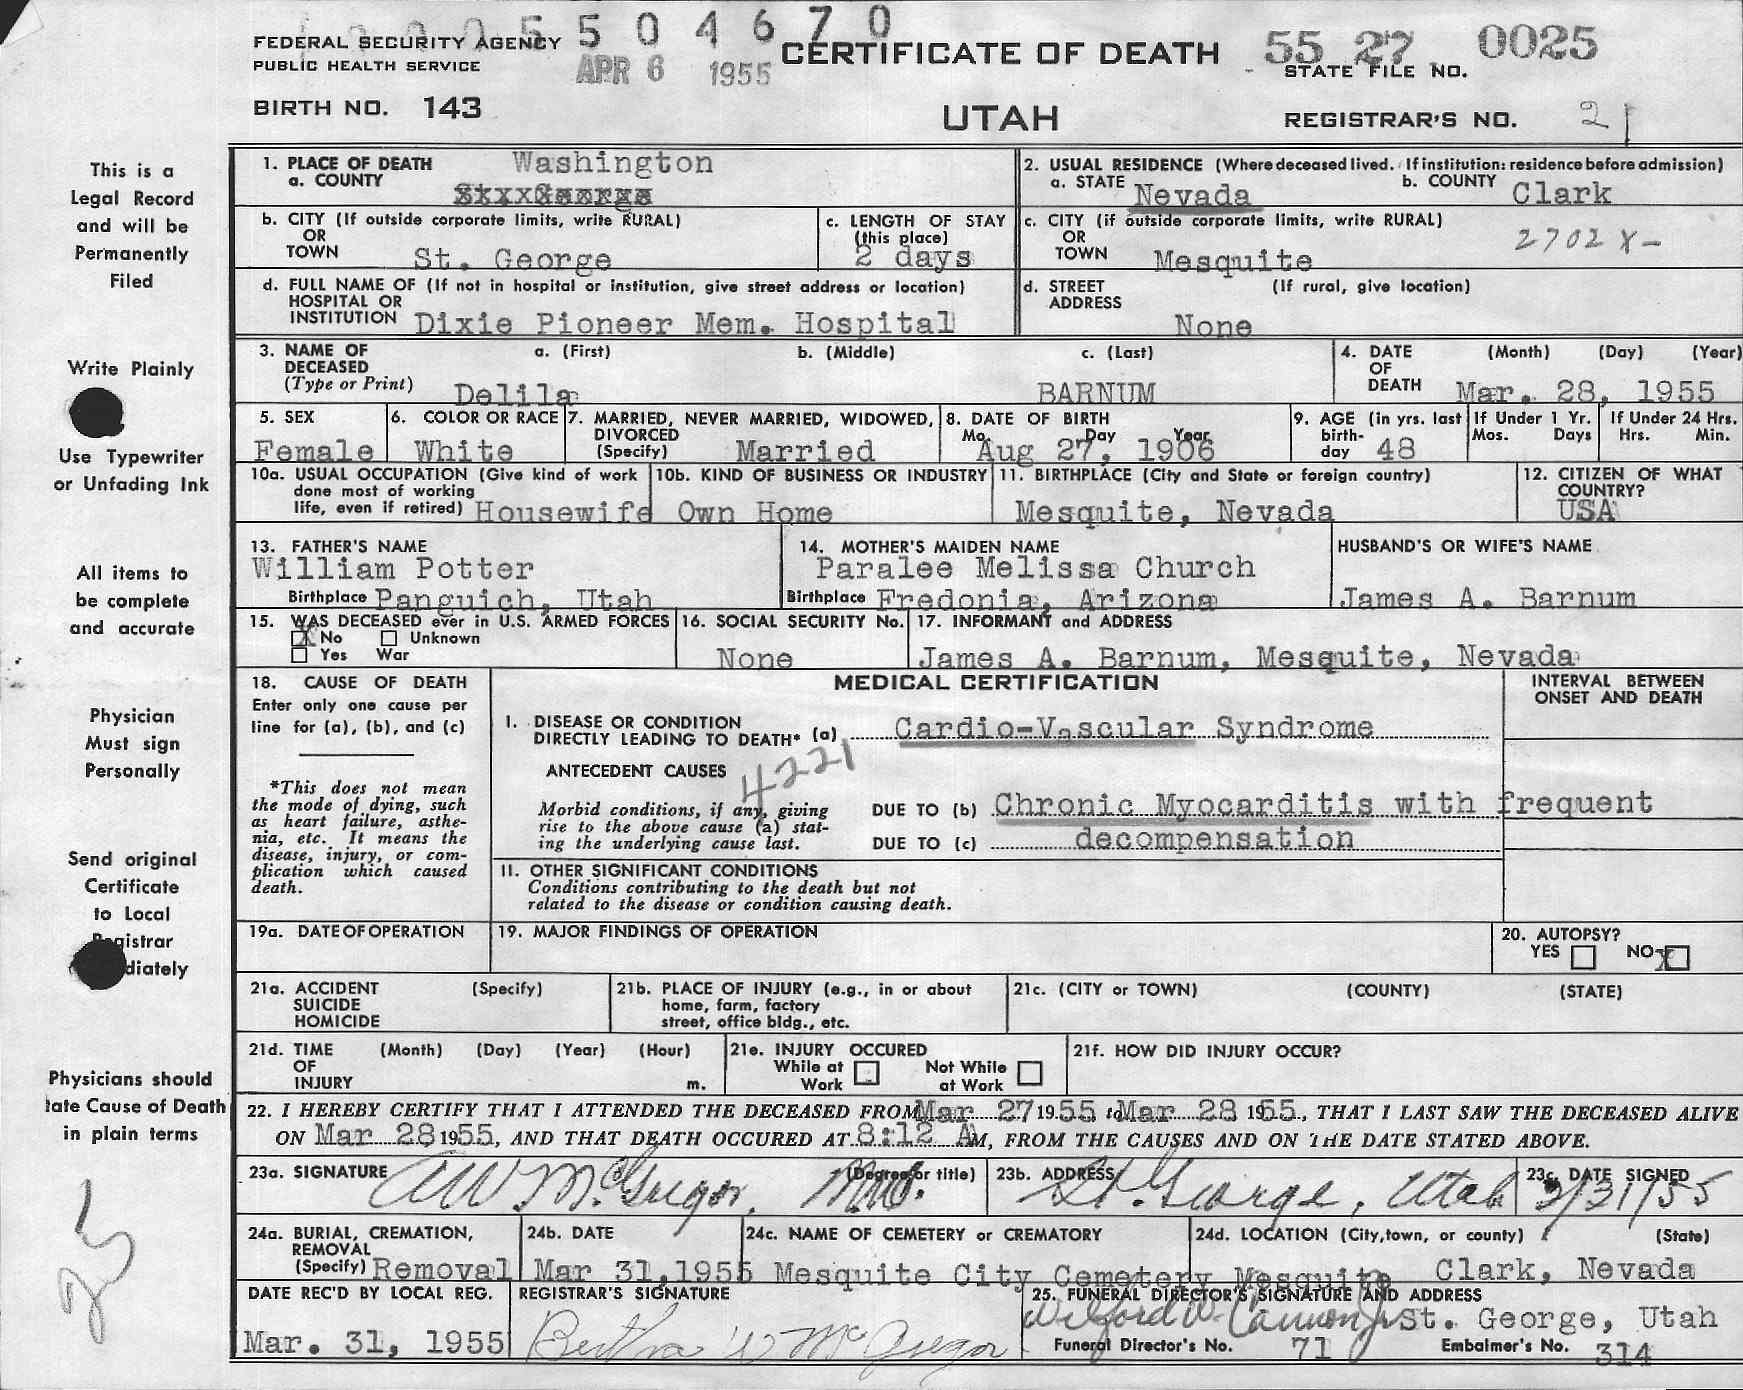 5 5 0 4 6 7 0
FEDERAL SECURITY AGENCY
PUBLIC HEALTH SERVICE
APR 6 1955
CERTIFICATE OF DEATH
55 27 0025
STATE FILE NO.
BIRTH NO. 143
UTAH
REGISTRAR'S NO. 21
This is a
Legal Record
and will be
Permanently
Filed
Write Plainly
Use Typewriter
or Unfading Ink
All items to
be complete
and accurate
Physician
Must sign
Personally
Send original
Certificate
to Local
gistrar
diately
Physicians should
tate Cause of Death
in plain terms
1. PLACE OF DEATH Washington
a. COUNTY
2. USUAL RESIDENCE (Where deceased lived. If institution: residence before admission)
a. STATE Nevada b. COUNTY Clark
b. CITY (If outside corporate limits, write RURAL)
OR
TOWN St. George
c. LENGTH OF STAY
(this place)
2 days
c. CITY (if outside corporate limits, write RURAL)
OR
TOWN Mesquite
2702 X-
d. FULL NAME OF (If not in hospital or institution, give street address or location)
HOSPITAL OR
INSTITUTION Dixie Pioneer Mem. Hospital
d. STREET (If rural, give location)
ADDRESS
None
3. NAME OF a. (First) b. (Middle) c. (Last)
DECEASED
(Type or Print) Delila BARNUM
4. DATE (Month) (Day) (Year)
OF
DEATH Mar. 28, 1955
5. SEX
Female
6. COLOR OR RACE
White
7. MARRIED, NEVER MARRIED, WIDOWED,
DIVORCED
(Specify) Married
8. DATE OF BIRTH
Mo. Day Year
Aug 27, 1906
9. AGE (in yrs. last
birth-
day 48
If Under 1 Yr.
Mos. Days
If Under 24 Hrs.
Hrs. Min.
10a. USUAL OCCUPATION (Give kind of work
done most of working
life, even if retired) Housewife
10b. KIND OF BUSINESS OR INDUSTRY
Own Home
11. BIRTHPLACE (City and State or foreign country)
Mesquite, Nevada
12. CITIZEN OF WHAT
COUNTRY?
USA
13. FATHER'S NAME
William Potter
Birthplace Panguich, Utah
14. MOTHER'S MAIDEN NAME
Paralee Melissa Church
Birthplace Fredonia, Arizona
HUSBAND'S OR WIFE'S NAME
James A. Barnum
15. WAS DECEASED ever in U.S. ARMED FORCES
X No Unknown
Yes War
16. SOCIAL SECURITY No.
None
17. INFORMANT and ADDRESS
James A. Barnum, Mesquite, Nevada
18. CAUSE OF DEATH
Enter only one cause per
line for (a), (b), and (c)
*This does not mean
the mode of dying, such
as heart failure, asthe-
nia, etc. It means the
disease, injury, or com-
plication which caused
death.
MEDICAL CERTIFICATION
INTERVAL BETWEEN
ONSET AND DEATH
I. DISEASE OR CONDITION
DIRECTLY LEADING TO DEATH* (a) Cardio-Vascular Syndrome
ANTECEDENT CAUSES
4221
Morbid conditions, if any, giving
rise to the above cause (a) stat-
ing the underlying cause last.
DUE TO (b) Chronic Myocarditis with frequent
DUE TO (c) decompensation
11. OTHER SIGNIFICANT CONDITIONS
Conditions contributing to the death but not
related to the disease or condition causing death.
19a. DATE OF OPERATION
19. MAJOR FINDINGS OF OPERATION
20. AUTOPSY?
YES NO X
21a. ACCIDENT (Specify)
SUICIDE
HOMICIDE
21b. PLACE OF INJURY (e.g., in or about
home, farm, factory
street, office bldg., etc.
21c. (CITY or TOWN) (COUNTY) (STATE)
21d. TIME (Month) (Day) (Year) (Hour)
OF
INJURY m.
21e. INJURY OCCURED
While at Not While
Work at Work
21f. HOW DID INJURY OCCUR?
22. I HEREBY CERTIFY THAT I ATTENDED THE DECEASED FROM Mar 27 1955 to Mar 28 1955, THAT I LAST SAW THE DECEASED ALIVE
ON Mar 28 1955, AND THAT DEATH OCCURED AT 8:12 AM, FROM THE CAUSES AND ON THE DATE STATED ABOVE.
23a. SIGNATURE (Degree or title)
AW McGregor, M.D.
23b. ADDRESS
St. George, Utah
23c. DATE SIGNED
3/31/55
24a. BURIAL, CREMATION,
REMOVAL
(Specify) Removal
24b. DATE
Mar 31, 1955
24c. NAME OF CEMETERY or CREMATORY
Mesquite City Cemetery
24d. LOCATION (City, town, or county) (State)
Mesquite Clark, Nevada
DATE REC'D BY LOCAL REG.
Mar. 31, 1955
REGISTRAR'S SIGNATURE
Bertha W McGregor
25. FUNERAL DIRECTOR'S SIGNATURE AND ADDRESS
Wilford W. Cannon Jr St. George, Utah
Funeral Director's No. 71 Embalmer's No. 314